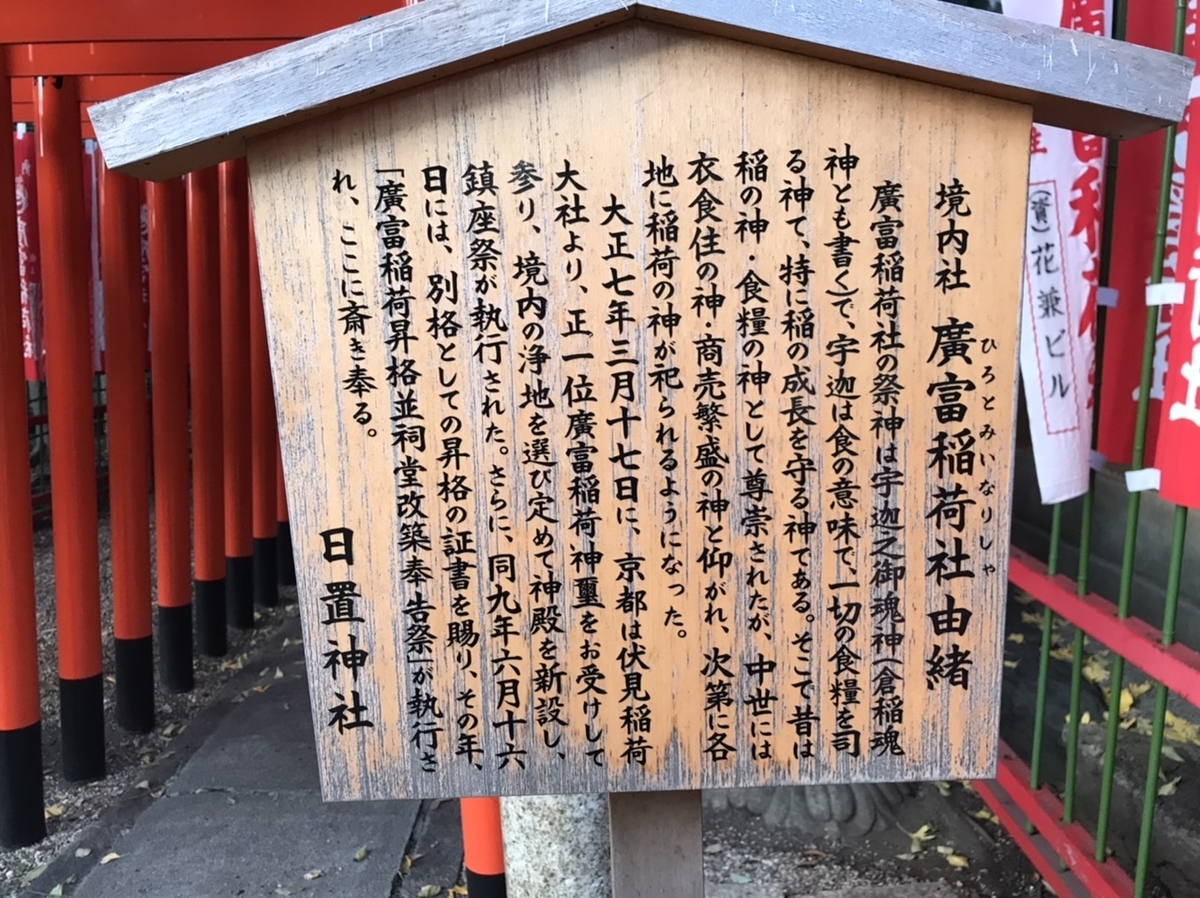 境内社 廣富稲荷社由緒
ひろとみいなりしゃ
廣富稲荷社の祭神は宇迦之御魂神(倉稲魂
神とも書く)で、宇迦は食の意味で、一切の食糧を司
る神て、特に稲の成長を守る神である。そこで昔は
稲の神・食糧の神として尊崇されたが、中世には
衣食住の神・商売繁盛の神と仰がれ、次第に各
地に稲荷の神が祀られるようになった。
大正七年三月十七日に、京都は伏見稲荷
大社より、正一位廣富稲荷神璽をお受けして
参り、境内の浄地を選び定めて神殿を新設し、
鎮座祭が執行された。さらに、同九年六月十六
日には、別格としての昇格の証書を賜り、その年、
「廣富稲荷昇格並祠堂改築奉告祭」が執行さ
れ、ここに斎き奉る。
日置神社
(資)花兼ビル